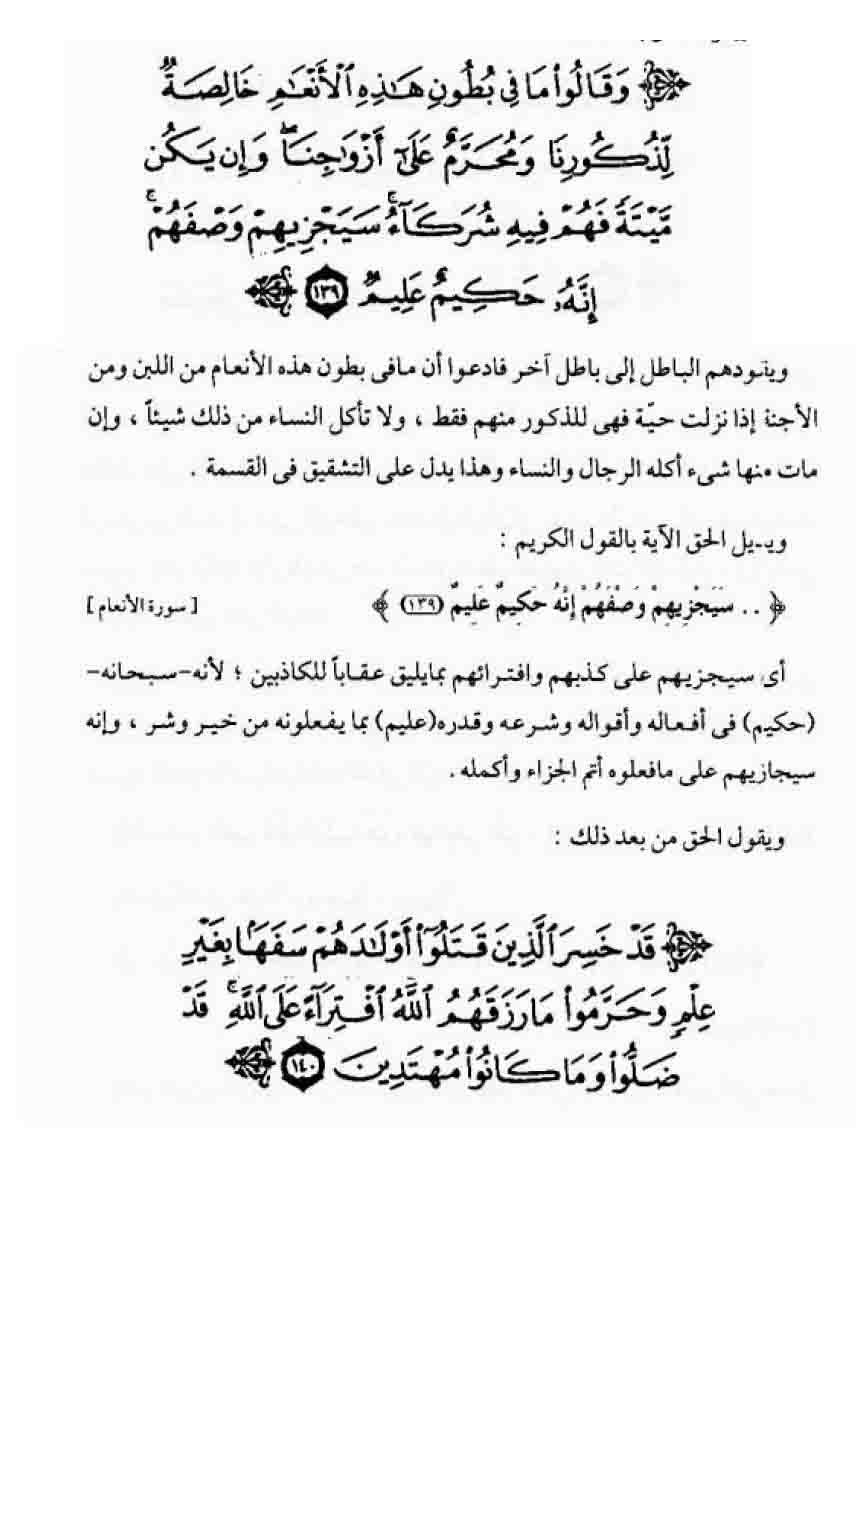 وَقَالُوا۟ مَا فِى بُطُونِ هَـٰذِهِ ٱلْأَنْعَـٰمِ خَالِصَةٌ
لِّذُكُورِنَا وَمُحَرَّمٌ عَلَىٰٓ أَزْوَٰجِنَا ۖ وَإِن يَكُن
مَّيْتَةً فَهُمْ فِيهِ شُرَكَآءُ ۚ سَيَجْزِيهِمْ وَصْفَهُمْ ۚ
إِنَّهُۥ حَكِيمٌ عَلِيمٌ ١٣٩
ويقودهم الباطل إلى باطل آخر فادعوا أن مافى بطون هذه الأنعام من اللبن ومن
الأجنة إذا نزلت حيّة فهى للذكور منهم فقط ، ولا تأكل النساء من ذلك شيئاً ، وإن
مات منها شىء أكله الرجال والنساء وهذا يدل على التشقيق فى القسمة .
ويذيل الحق الآية بالقول الكريم :
﴿ .. سَيَجْزِيهِمْ وَصْفَهُمْ إِنَّهُ حَكِيمٌ عَلِيمٌ (١٣٩) ﴾ [ سورة الأنعام ]
أى سيجزيهم على كذبهم وافترائهم بمايليق عقاباً للكاذبين ؛ لأنه-سبحانه-
(حكيم) فى أفعاله وأقواله وشرعه وقدره(عليم) بما يفعلونه من خير وشر ، وإنه
سيجازيهم على مافعلوه أتم الجزاء وأكمله .
ويقول الحق من بعد ذلك :
قَدْ خَسِرَ ٱلَّذِينَ قَتَلُوٓا۟ أَوْلَـٰدَهُمْ سَفَهًۢا بِغَيْرِ
عِلْمٍ وَحَرَّمُوا۟ مَا رَزَقَهُمُ ٱللَّهُ ٱفْتِرَآءً عَلَى ٱللَّهِ ۚ قَدْ
ضَلُّوا۟ وَمَا كَانُوا۟ مُهْتَدِينَ ١٤٠